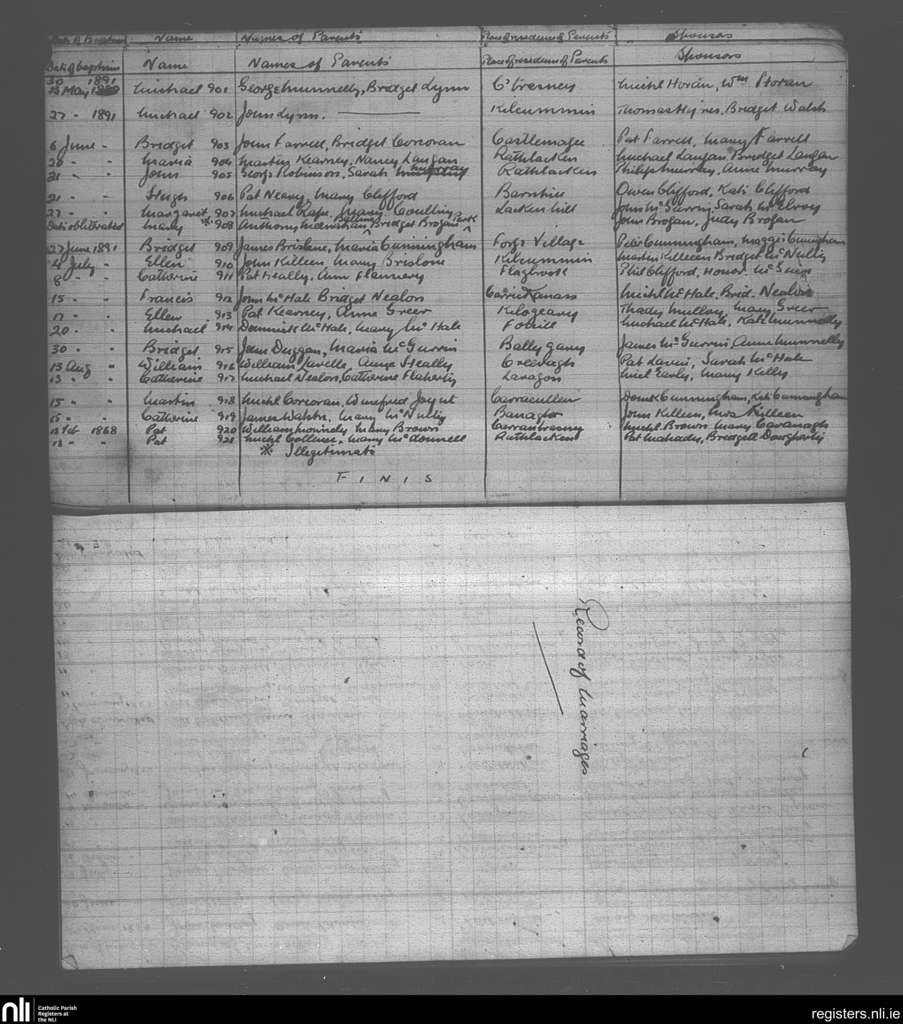 Date of Baptism Name Names of Parents Place of residence of Parents Sponsors
Date of baptism Name Names of Parents Place of residence of Parents Sponsors
30 1891
May Michael 901 George Munnelly, Bridget Lynn C'tremey Michl Horan, Wm Horan
27 - 1891 Michael 902 John Lynn. Kilcummin Thomas Hynes, Bridget Walsh
6 June - Bridget 903 John Farrell, Bridget Corcoran Castlemagee Pat Farrell, Mary Farrell
20 - - Maria 904 Martin Kearney, Nancy Langan Rathlacken Michael Langan, Bridget Langan
21 - - John 905 George Robinson, Sarah Murray Rathlacken Philip Murray, Anne Murray
21 - - 906 Pat Neary, Mary Clifford Barnhill Owen Clifford, Kate Clifford
27 - - Margaret 907 Michael Kane, Mary Goulding Lacken Hill John McGurrin, Sarah McElroy
Date obliterated Mary * 908 Anthony Bridget Brogan John Brogan, Judy Brogan
27 June 1891 Bridget 909 James Brislane, Maria Cunningham Forge Village Peter Cunningham, Maggie Cunningham
4 July - Ellen 910 John Killeen, Mary Brislone Kilcummin Martin Killeen Bridget McNulty
8 - - Catherine 911 Pat Healy, Ann Flannery Flagbrook Phil Clifford, Honor
15 - - Francis 912 John McHale Bridget Nealon Michl McHale, Brid. Nealon
17 - - Ellen 913 Pat Kearney, Anne Greer Kilogeany Thady Mulloy, Mary Greer
20 - - Michael 914 Dominick McHale, Mary McHale Foxhill Michael McHale, Kate Munnelly
30 - - Bridget 915 John Duggan, Maria McGurrin Ballygany James McGurrin, Anne Munnelly
13 Aug - William 916 William Lavelle, Anne Healy Creevagh Pat Lavin, Sarah McHale
13 - - Catherine 917 Michael Nealon, Catherine Flaherty Laragan Michl Early, Mary Kelly
15 - - Martin 918 Michl Corcoran, Winefred Joynt Carracullen Domk Cunningham, Kate Cunningham
15 - - Catherine 919 James Walsh, Mary McNulty Banagher John Killeen, Killeen
Feb - 1868 Pat 920 William Mary Brown Michl Brown Mary Cavanagh
13 - - Pat 921 Michl Mary McDonnell Rathlacken Pat Mahady, Bridgett Dougherty
* Illegitimate
F I N I S
Record of Marriages
nli Catholic Parish Registers at the NLI
registers.nli.ie